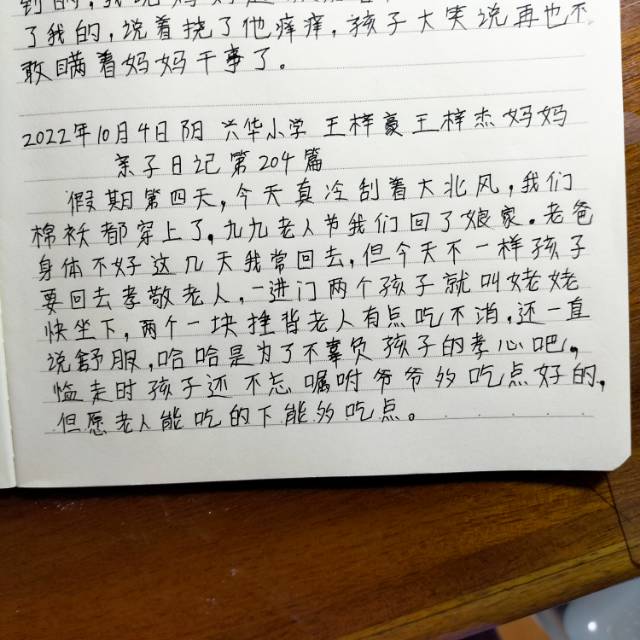 了我的，说着挠了他痒痒，孩子大笑说再也不
敢瞒着妈妈干事了。
2022年10月4日 阴 兴华小学 王梓豪 王梓杰 妈妈
亲子日记 第204篇
假期第四天，今天真冷刮着大北风，我们
棉袄都穿上了。九九老人节我们回了娘家。老爸
身体不好这几天我常回去，但今天不一样孩子
要回去孝敬老人，一进门两个孩子就叫姥姥
快坐下，两个一块捶背老人有点吃不消，还一直
说舒服，哈哈是为了不辜负孩子的孝心吧。
临走时孩子还不忘嘱咐爷爷多吃点好的，
但愿老人能吃的下能多吃点。